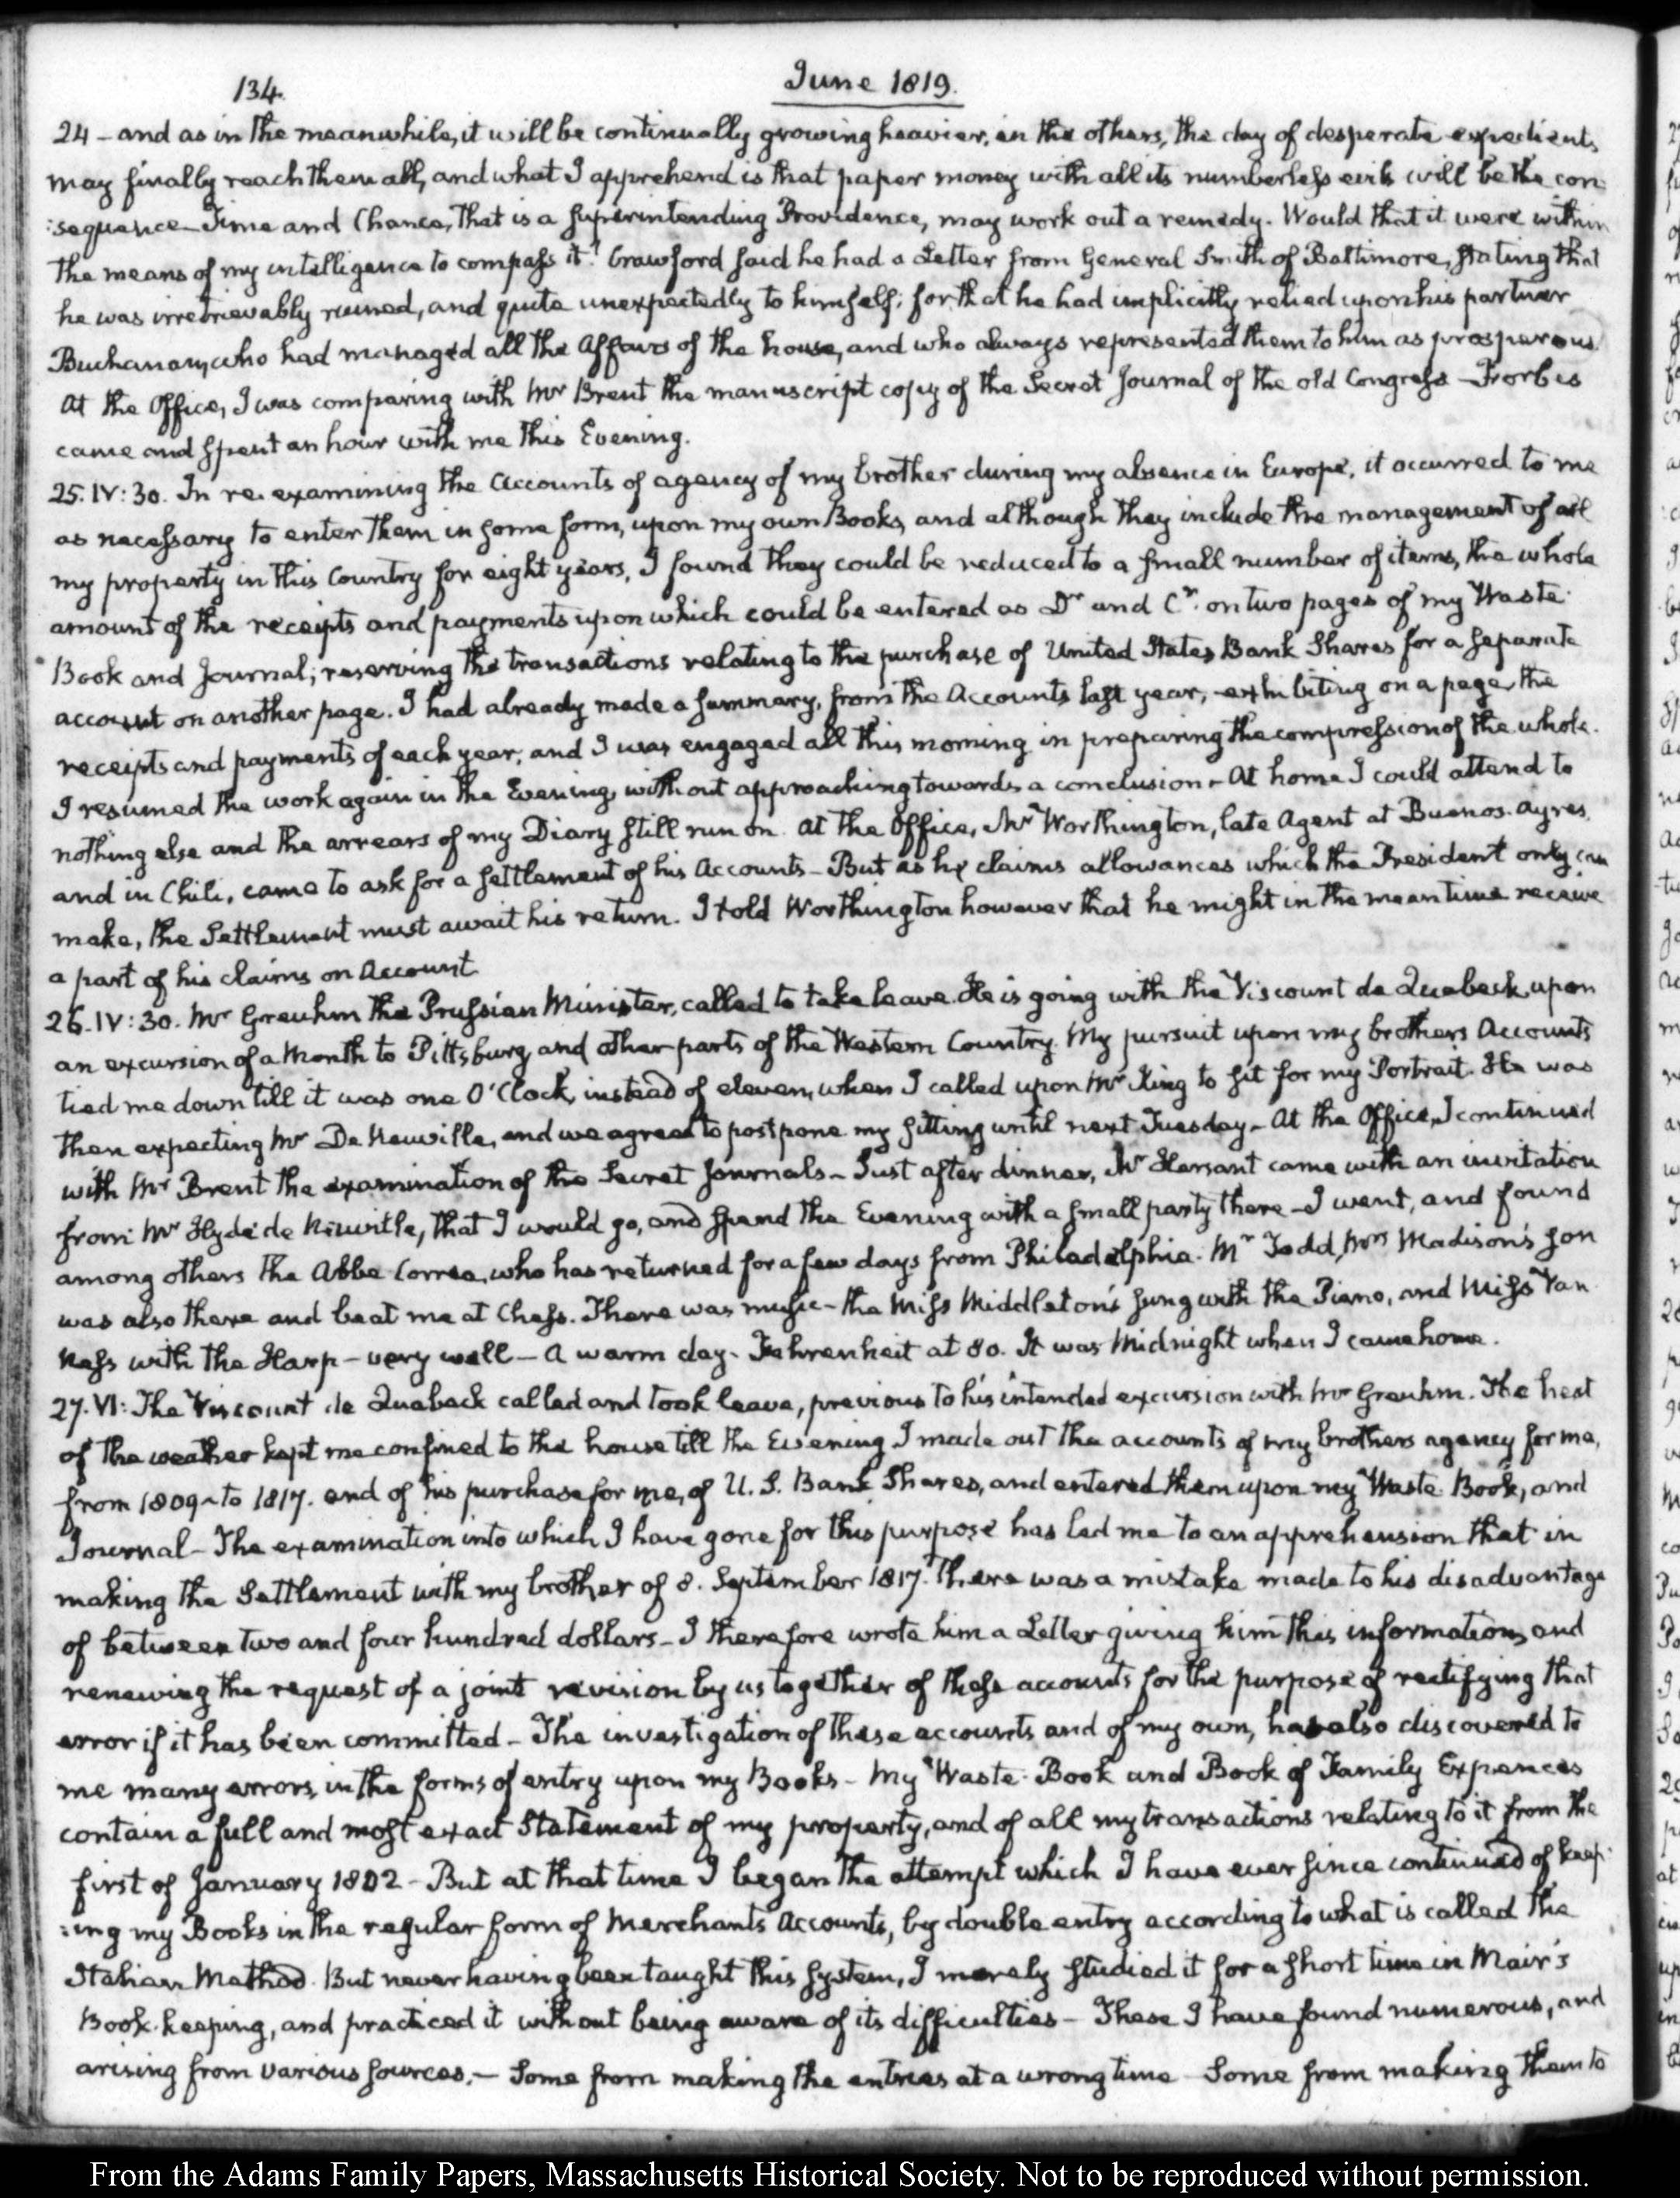 134.
June 1819.
24 - and as in the meanwhile, it will be continually growing heavier, in the others, the day of desperate expedients
may finally reach them all, and what I apprehend is that paper money with all its numberless evils will be the con-
:sequence. Time and Chance, that is a Superintending Providence, may work out a remedy. Would that it were within
the means of my intelligence to compass it! Crawford said he had a Letter from General Smith of Baltimore, stating that
he was irretrievably ruined, and quite unexpectedly to himself; for that he had implicitly relied upon his partner
Buchanan, who had managed all the Affairs of the house, and who always represented them to him as prosperous.
At the Office, I was comparing with Mr Brent the manuscript copy of the Secret Journal of the old Congress - Forbes
came and spent an hour with me this Evening.
25. IV:30. In re-examining the Accounts of agency of my brother during my absence in Europe, it occurred to me
as necessary to enter them in some form, upon my own Books, and although they include the management of all
my property in this Country for eight years, I found they could be reduced to a small number of items, the whole
amount of the receipts and payments upon which could be entered as Dr and Cr. on two pages of my Waste-
Book and Journal; reserving the transactions relating to the purchase of United States Bank Shares for a separate
account on another page. I had already made a summary, from the Accounts last year, exhibiting on a page, the
receipts and payments of each year; and I was engaged all this morning in preparing the compression of the whole.
I resumed the work again in the Evening, without approaching towards a conclusion - At home I could attend to
nothing else and the arrears of my Diary still run on. At the Office, Mr Worthington, late Agent at Buenos-Ayres,
and in Chili, came to ask for a settlement of his Accounts - But as he claims allowances which the President only can
make, the Settlement must await his return. I told Worthington however that he might in the mean time receive
a part of his claims on Account
26. IV:30. Mr Greuhm the Prussian Minister, called to take leave. He is going with the Viscount de Quabeck, upon
an excursion of a Month to Pittsburg, and other parts of the Western Country. My pursuit upon my brothers Accounts
tied me down till it was one O'Clock, instead of eleven, when I called upon Mr King to sit for my Portrait. He was
then expecting Mr De Neuville, and we agreed to postpone my sitting until next Tuesday - At the Office, I continued
with Mr Brent the examination of the Secret Journals - Just after dinner, Mr Hersant came with an invitation
from Mr Hyde de Neuville, that I would go, and spend the Evening with a small party there - I went, and found
among others the Abbe Correa, who has returned for a few days from Philadelphia. Mr Todd, Mrs Madison's son
was also there and beat me at Chess. There was music - the Miss Middleton's sung with the Piano, and Miss Van
Ness with the Harp - very well - A warm day - Fahrenheit at 80. It was Midnight when I came home.
27. VI: The Viscount de Quabeck called and took leave, previous to his intended excursion with Mr Greuhm. The heat
of the weather kept me confined to the house till the Evening. I made out the accounts of my brothers agency for me,
from 1809 - to 1817. and of his purchase for me, of U. S. Bank Shares, and entered them upon my Waste-Book, and
Journal - The examination into which I have gone for this purpose has led me to an apprehension that in
making the Settlement with my brother of 8. September 1817. there was a mistake made to his disadvantage
of between two and four hundred dollars - I therefore wrote him a Letter giving him this information, and
renewing the request of a joint revision by us together of these accounts for the purpose of rectifying that
error if it has been committed - The investigation of these accounts and of my own, has also discovered to
me many errors, in the forms of entry upon my Books - My Waste-Book and Book of Family Expences
contain a full and most exact Statement of my property, and of all my transactions relating to it from the
first of January 1802 - But at that time I began the attempt which I have ever since continued of keep-
:ing my Books in the regular form of Merchants Accounts, by double entry according to what is called the
Italian Method. But never having been taught this system, I merely studied it for a short time in Mair's
Book-keeping, and practiced it without being aware of its difficulties - These I have found numerous, and
arising from various sources. - Some from making the entries at a wrong time - Some from making them to
From the Adams Family Papers, Massachusetts Historical Society. Not to be reproduced without permission.